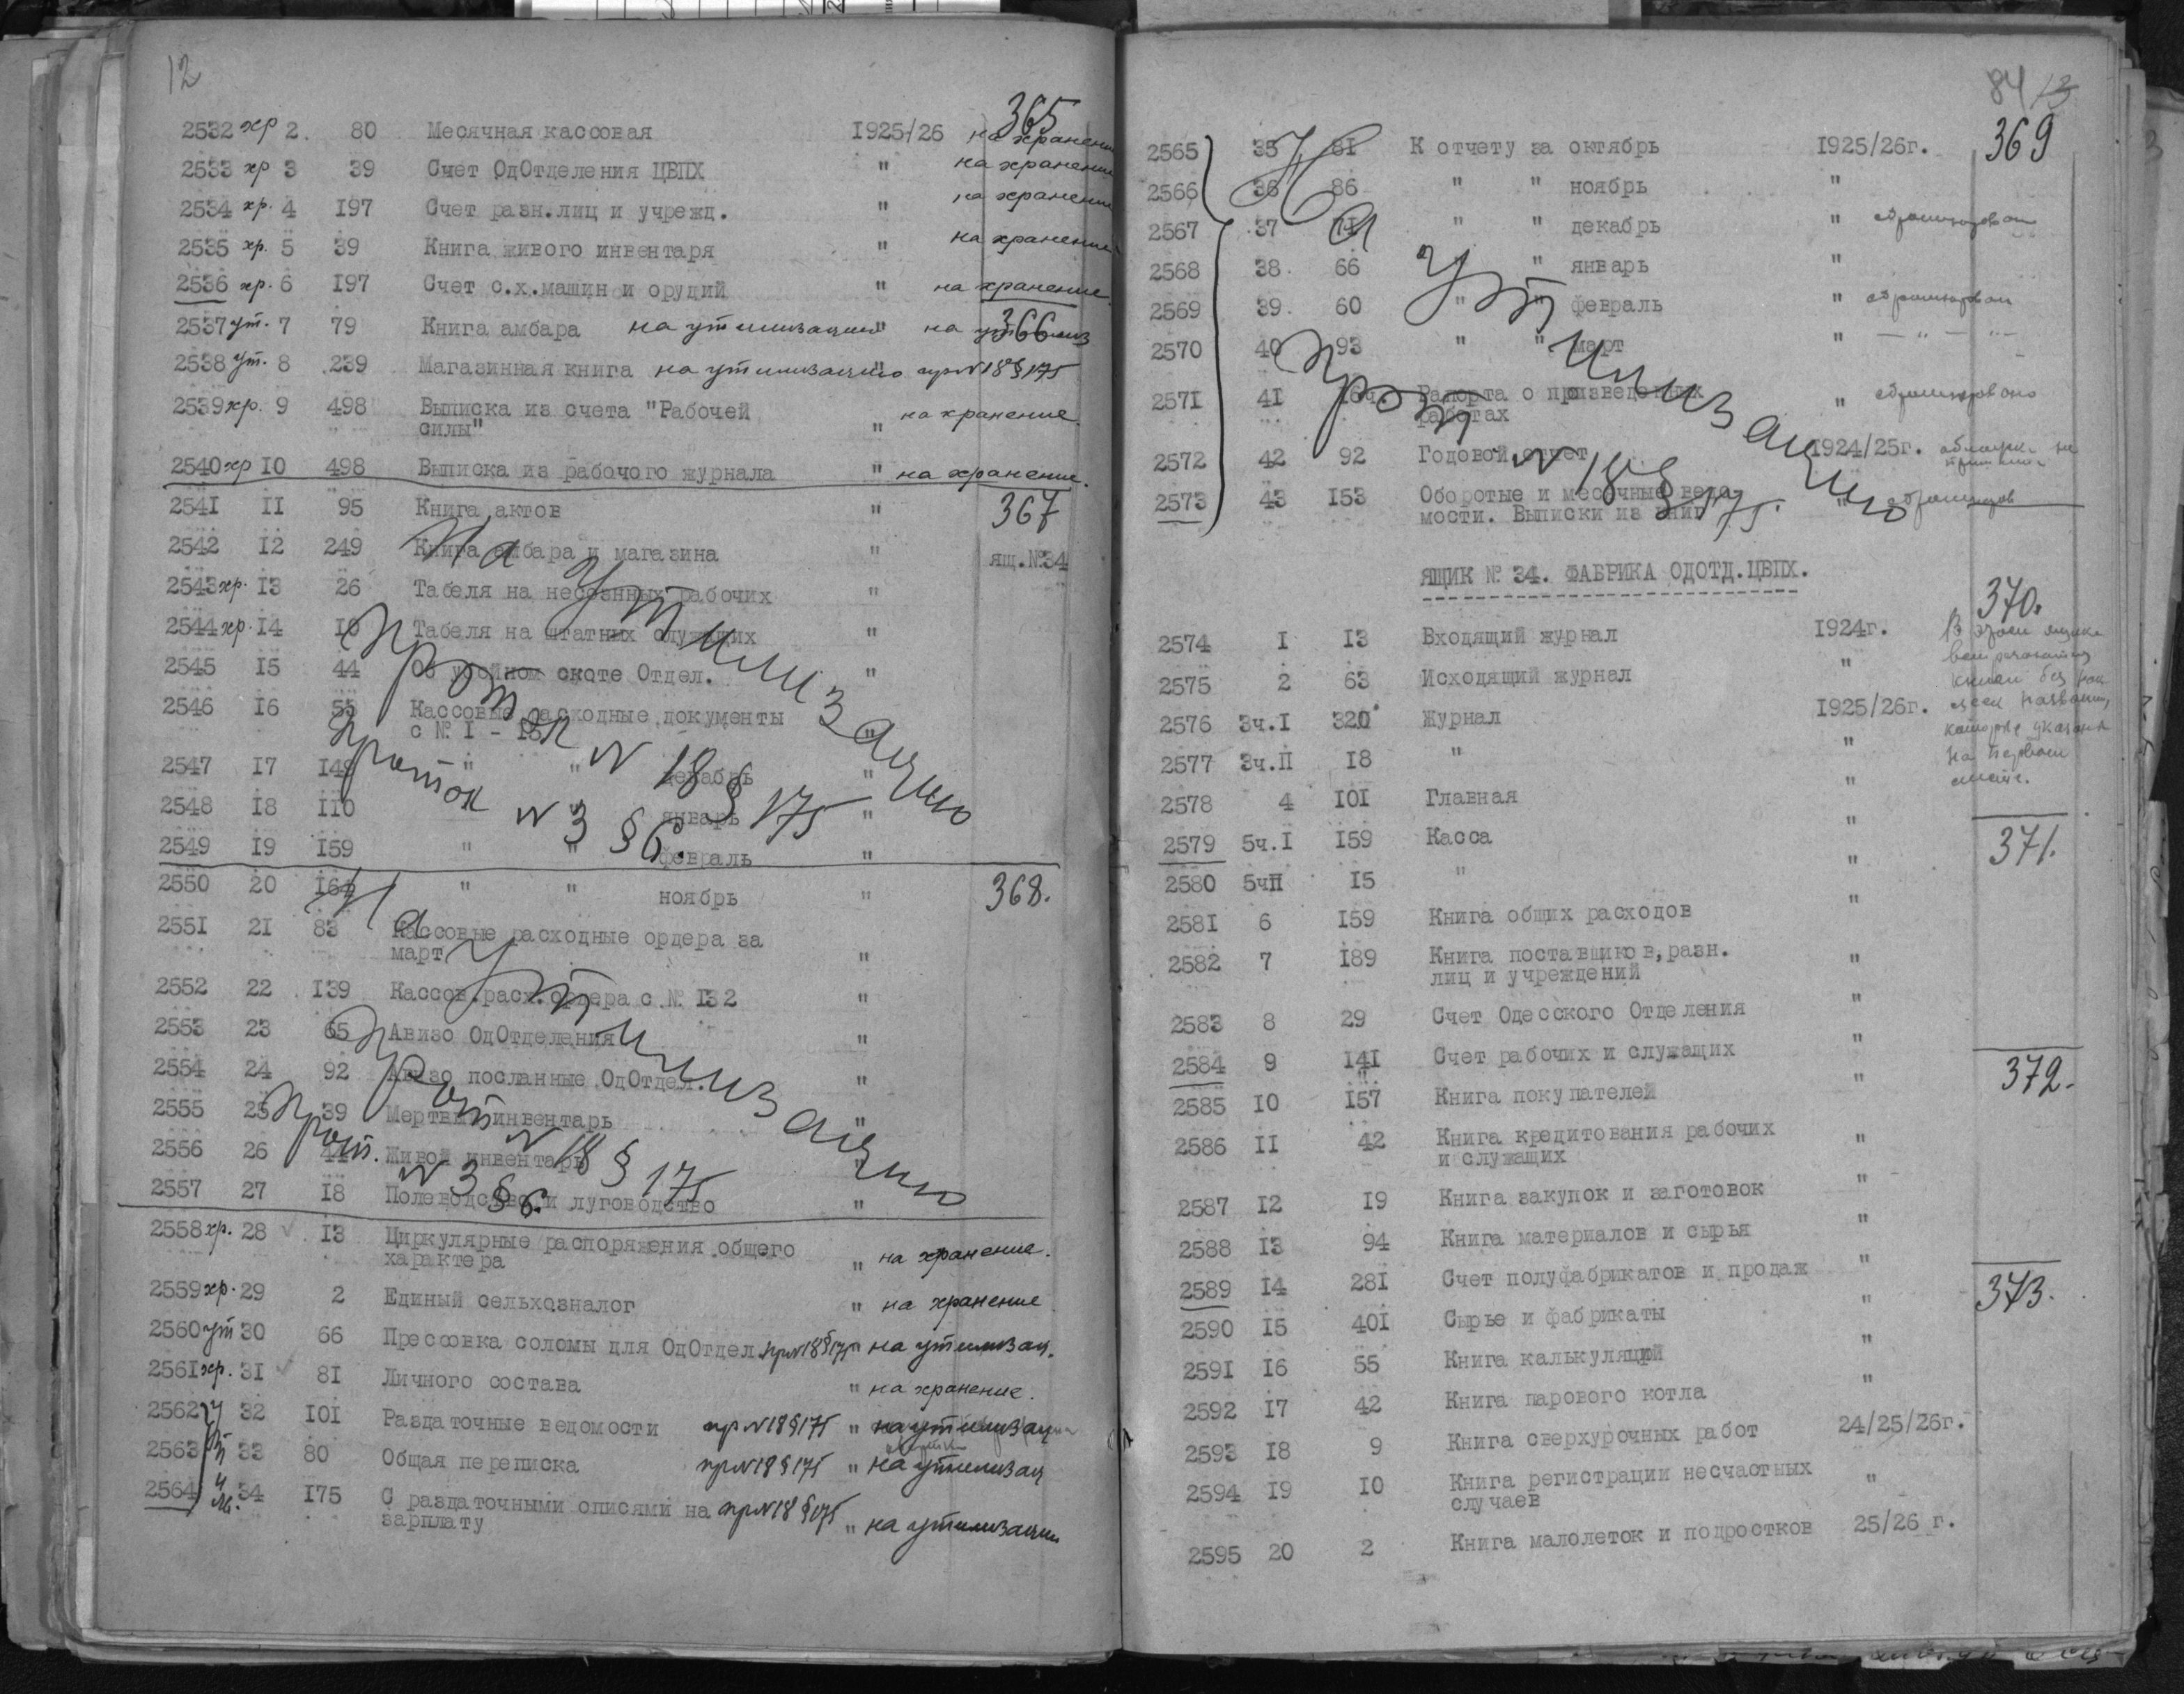 12
365
2532 хр 2. 80 Месячная кассовая 1925/26 на хранение
2533 хр 3 39 Счет ОдОтделения ЦВПХ " на хранение
2534 хр. 4 197 Счет разн.лиц и учрежд. " на хранение
2535 хр. 5 39 Книга живого инвентаря " на хранение
2536 хр. 6 197 Счет с.х.машин и орудий " на хранение.
2537 ут. 7 79 Книга амбара на утилизацию " на 366
2538 ут. 8 239 Магазинная книга на утилизацию " пр N18 § 175
2539 хр. 9 498 Выписка из счета "Рабочей
силы" " на хранение.
2540 хр 10 498 Выписка из рабочего журнала " на хранение.
2541 11 95 Книга актов " 367
2542 12 249 Книга амбара и магазина " ящ.№34
2543 хр. 13 26 Табеля на несезнных рабочих " "
2544 хр. 14 Табеля на штатных служащих "
2545 15 44 Об убойном скоте Отдел. "
2546 16 55 Кассовые расходные документы
с № 1 - "
2547 17 149 " " декабрь "
2548 18 110 " январь "
2549 19 159 " " февраль "
На утилизацию
проток N 18 § 175
проток N 3 § 6.
2550 20 " " ноябрь " 368.
2551 21 83 Кассовые расходные ордера за
март "
2552 22 139 Кассов.расх.ордера с № 132 "
2553 23 65 Авизо ОдОтделения "
2554 24 92 Авизо посланные ОдОтдел. "
2555 25 39 Мертвый инвентарь "
2556 26 44 Живой инвентарь "
2557 27 18 Полеводство и луговодство "
На утилизацию
прот N 18 § 175
прот. N 3 § 6.
2558 хр. 28 13 Циркулярные распоряжения общего
характера " на хранение.
2559 хр. 29 2 Единый сельхозналог " на хранение
2560 ут 30 66 Прессовка соломы для ОдОтдел. пр N18 § 175 " на утилизац.
2561 хр. 31 81 Личного состава " на хранение.
2562 32 101 Раздаточные ведомости пр N18 § 175 " на утилизац
2563 33 80 Общая переписка пр N18 § 175 " на утилизац
2564 34 175 С раздаточными описями на пр N18 § 175
зарплату " на утилизации
84 13
2565 35 81 К отчету за октябрь 1925/26г. 369
2566 36 86 " " ноябрь "
2567 37 " " декабрь "
2568 38. 66 " " январь "
2569 39. 60 " " февраль "
2570 40 93 " " март " — " —
2571 41 Рапорта о произведенных
работах "
2572 42 92 Годовой отчет 1924/25г.
2573 43 153 Оборотые и месячные ведо-
мости. Выписки из книг "
На утилизацию
прот N 18 § 175.
ЯЩИК № 34. ФАБРИКА ОДОТД.ЦВПХ.
370.
2574 1 13 Входящий журнал 1924г. В этом ящике
2575 2 63 Исходящий журнал "
книги без
2576 3ч.I 320 Журнал 1925/26г.
которые указаны
2577 3ч.II 18 " "
на первом
листе.
2578 4 101 Главная "
2579 5ч.I 159 Касса " 371.
2580 5чII 15 " "
2581 6 159 Книга общих расходов "
2582 7 189 Книга поставщиков,разн.
лиц и учреждений "
2583 8 29 Счет Одесского Отделения "
2584 9 141 Счет рабочих и служащих "
2585 10 157 Книга покупателей " 372.
2586 11 42 Книга кредитования рабочих
и служащих "
2587 12 19 Книга закупок и заготовок "
2588 13 94 Книга материалов и сырья "
2589 14 281 Счет полуфабрикатов и продаж "
2590 15 401 Сырье и фабрикаты " 373.
2591 16 55 Книга калькуляций "
2592 17 42 Книга парового котла "
2593 18 9 Книга сверхурочных работ 24/25/26г.
2594 19 10 Книга регистрации несчастных
случаев "
2595 20 2 Книга малолеток и подростков 25/26 г.